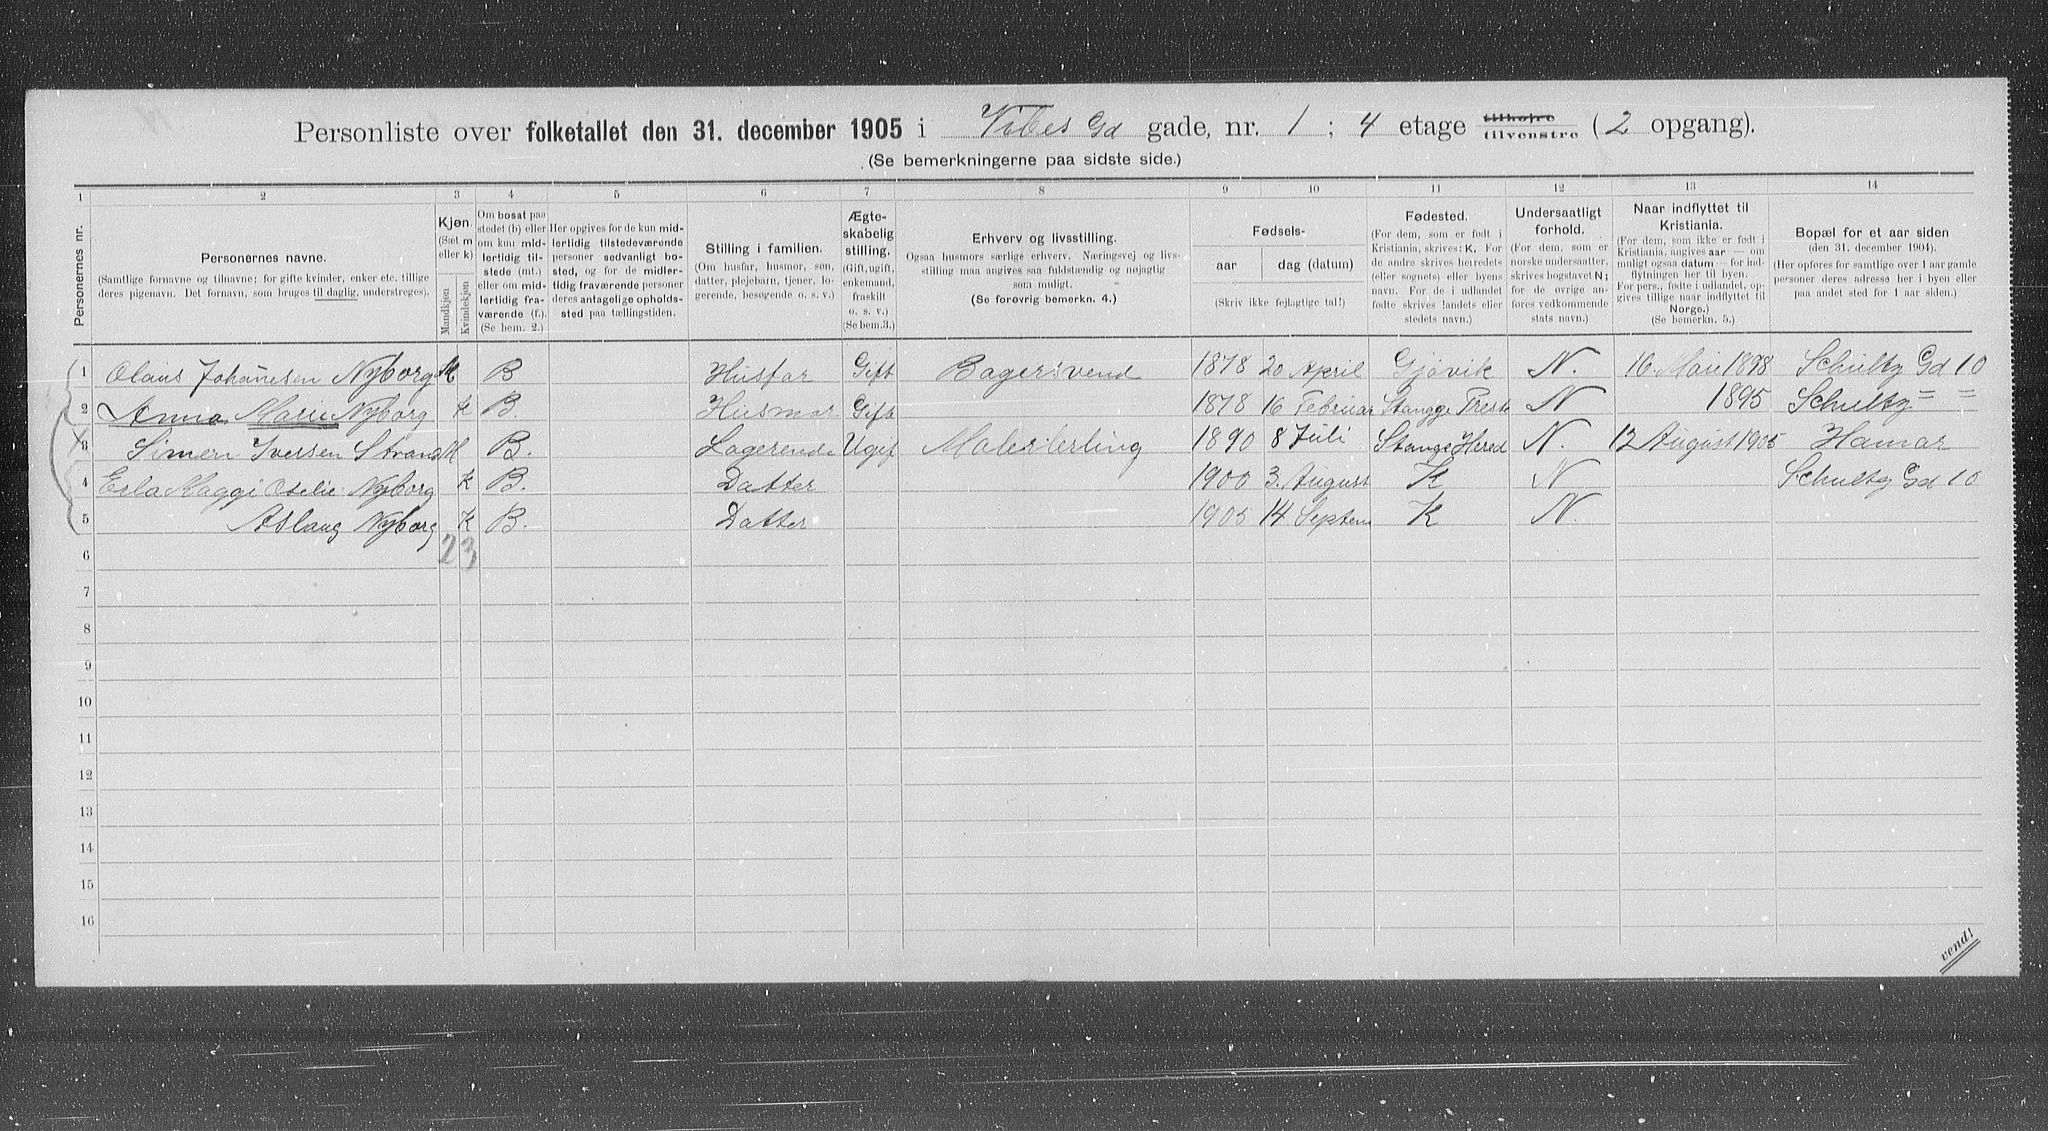 Personliste over folketallet den 31. december 1905 i Vibes Gd gade, nr. 1 ; 4 etage tilhøjre tilvenstre (2 opgang).
(Se bemerkningerne paa sidste side.)
1 2 3 4 5 6 7 8 9 10 11 12 13 14
Personernes nr.
Personernes navne.
(Samtlige fornavne og tilnavne; for gifte kvinder, enker etc. tillige
deres pigenavn. Det fornavn, som bruges til daglig, understreges).
Kjøn.
(Sæt m
eller k)
Mandkjøn
Kvindekjøn
Om bosat paa
stedet (b) eller
om kun midlertidig tilstede (mt.)
eller om midlertidig fraværende (f.).
(Se bem. 2.)
Her opgives for de kun midlertidig tilstedeværende
personer sedvanlig bosted, og for de midlertidig fraværende personer
deres antagelige opholdssted paa tællingstiden.
Stilling i familien.
(Om husfar, husmor, søn,
datter, plejebarn, tjener, logerende, besøgende o. s. v.)
Ægteskabelig
stilling.
(Gift, ugift,
enkemand,
fraskilt
o. s. v.)
(Se bem. 3.)
Erhverv og livsstilling.
Ogsaa husmors særlige erhverv. Næringsvej og livsstilling maa angives saa fuldstændig og nøjagtig
som muligt.
(Se forøvrig bemerkn. 4.)
Fødsels-
aar
dag (datum)
(Skriv ikke fejlagtige tal!)
Fødested.
(For dem, som er født i
Kristiania, skrives: K. For
de andre skrives herredets
(eller sognets) eller byens
navn. For de i udlandet
fødte skrives landets eller
stedets navn.)
Undersaatligt
forhold.
(For dem, som er
norske undersaatter,
skrives bogstavet N;
for de øvrige angives vedkommende
stats navn.)
Naar indflyttet til
Kristiania.
(For dem, som ikke er født i
Kristiania, angives aar — om
muligt ogsaa datum — for indflytningen her til byen.
For pers., fødte i udlandet, opgives tillige naar indflyttet til
Norge.)
(Se bemerkn. 5.)
Bopæl for et aar siden
(den 31. december 1904).
(Her opføres for samtlige over 1 aar gamle
personer deres adresse her i byen eller
paa andet sted for 1 aar siden.)
1 Olaus Johannesen Nyborg M B Husfar Gift Bagersvend 1878 20 April Gjøvik N. 16 Mai 1898 Schultz Gd 10
2 Anna Marie Nyborg K B. Husmor Gift 1878 16 Februar Stangge Prest N 1895 Schultz = =
3 Simen Iversen Strand M B. Logerende Ugif Malerlerling 1890 8 Juli Stange Hered N. 12 August 1905 Hamar
4 Esla Maggi Otelie Nyborg K B. Datter 1900 3. August K N Schultz Gd 10
5 Aslaug Nyborg K B. Datter 1905 14 Septem K N.
6 2 3
7
8
9
10
11
12
13
14
15
16
vend!